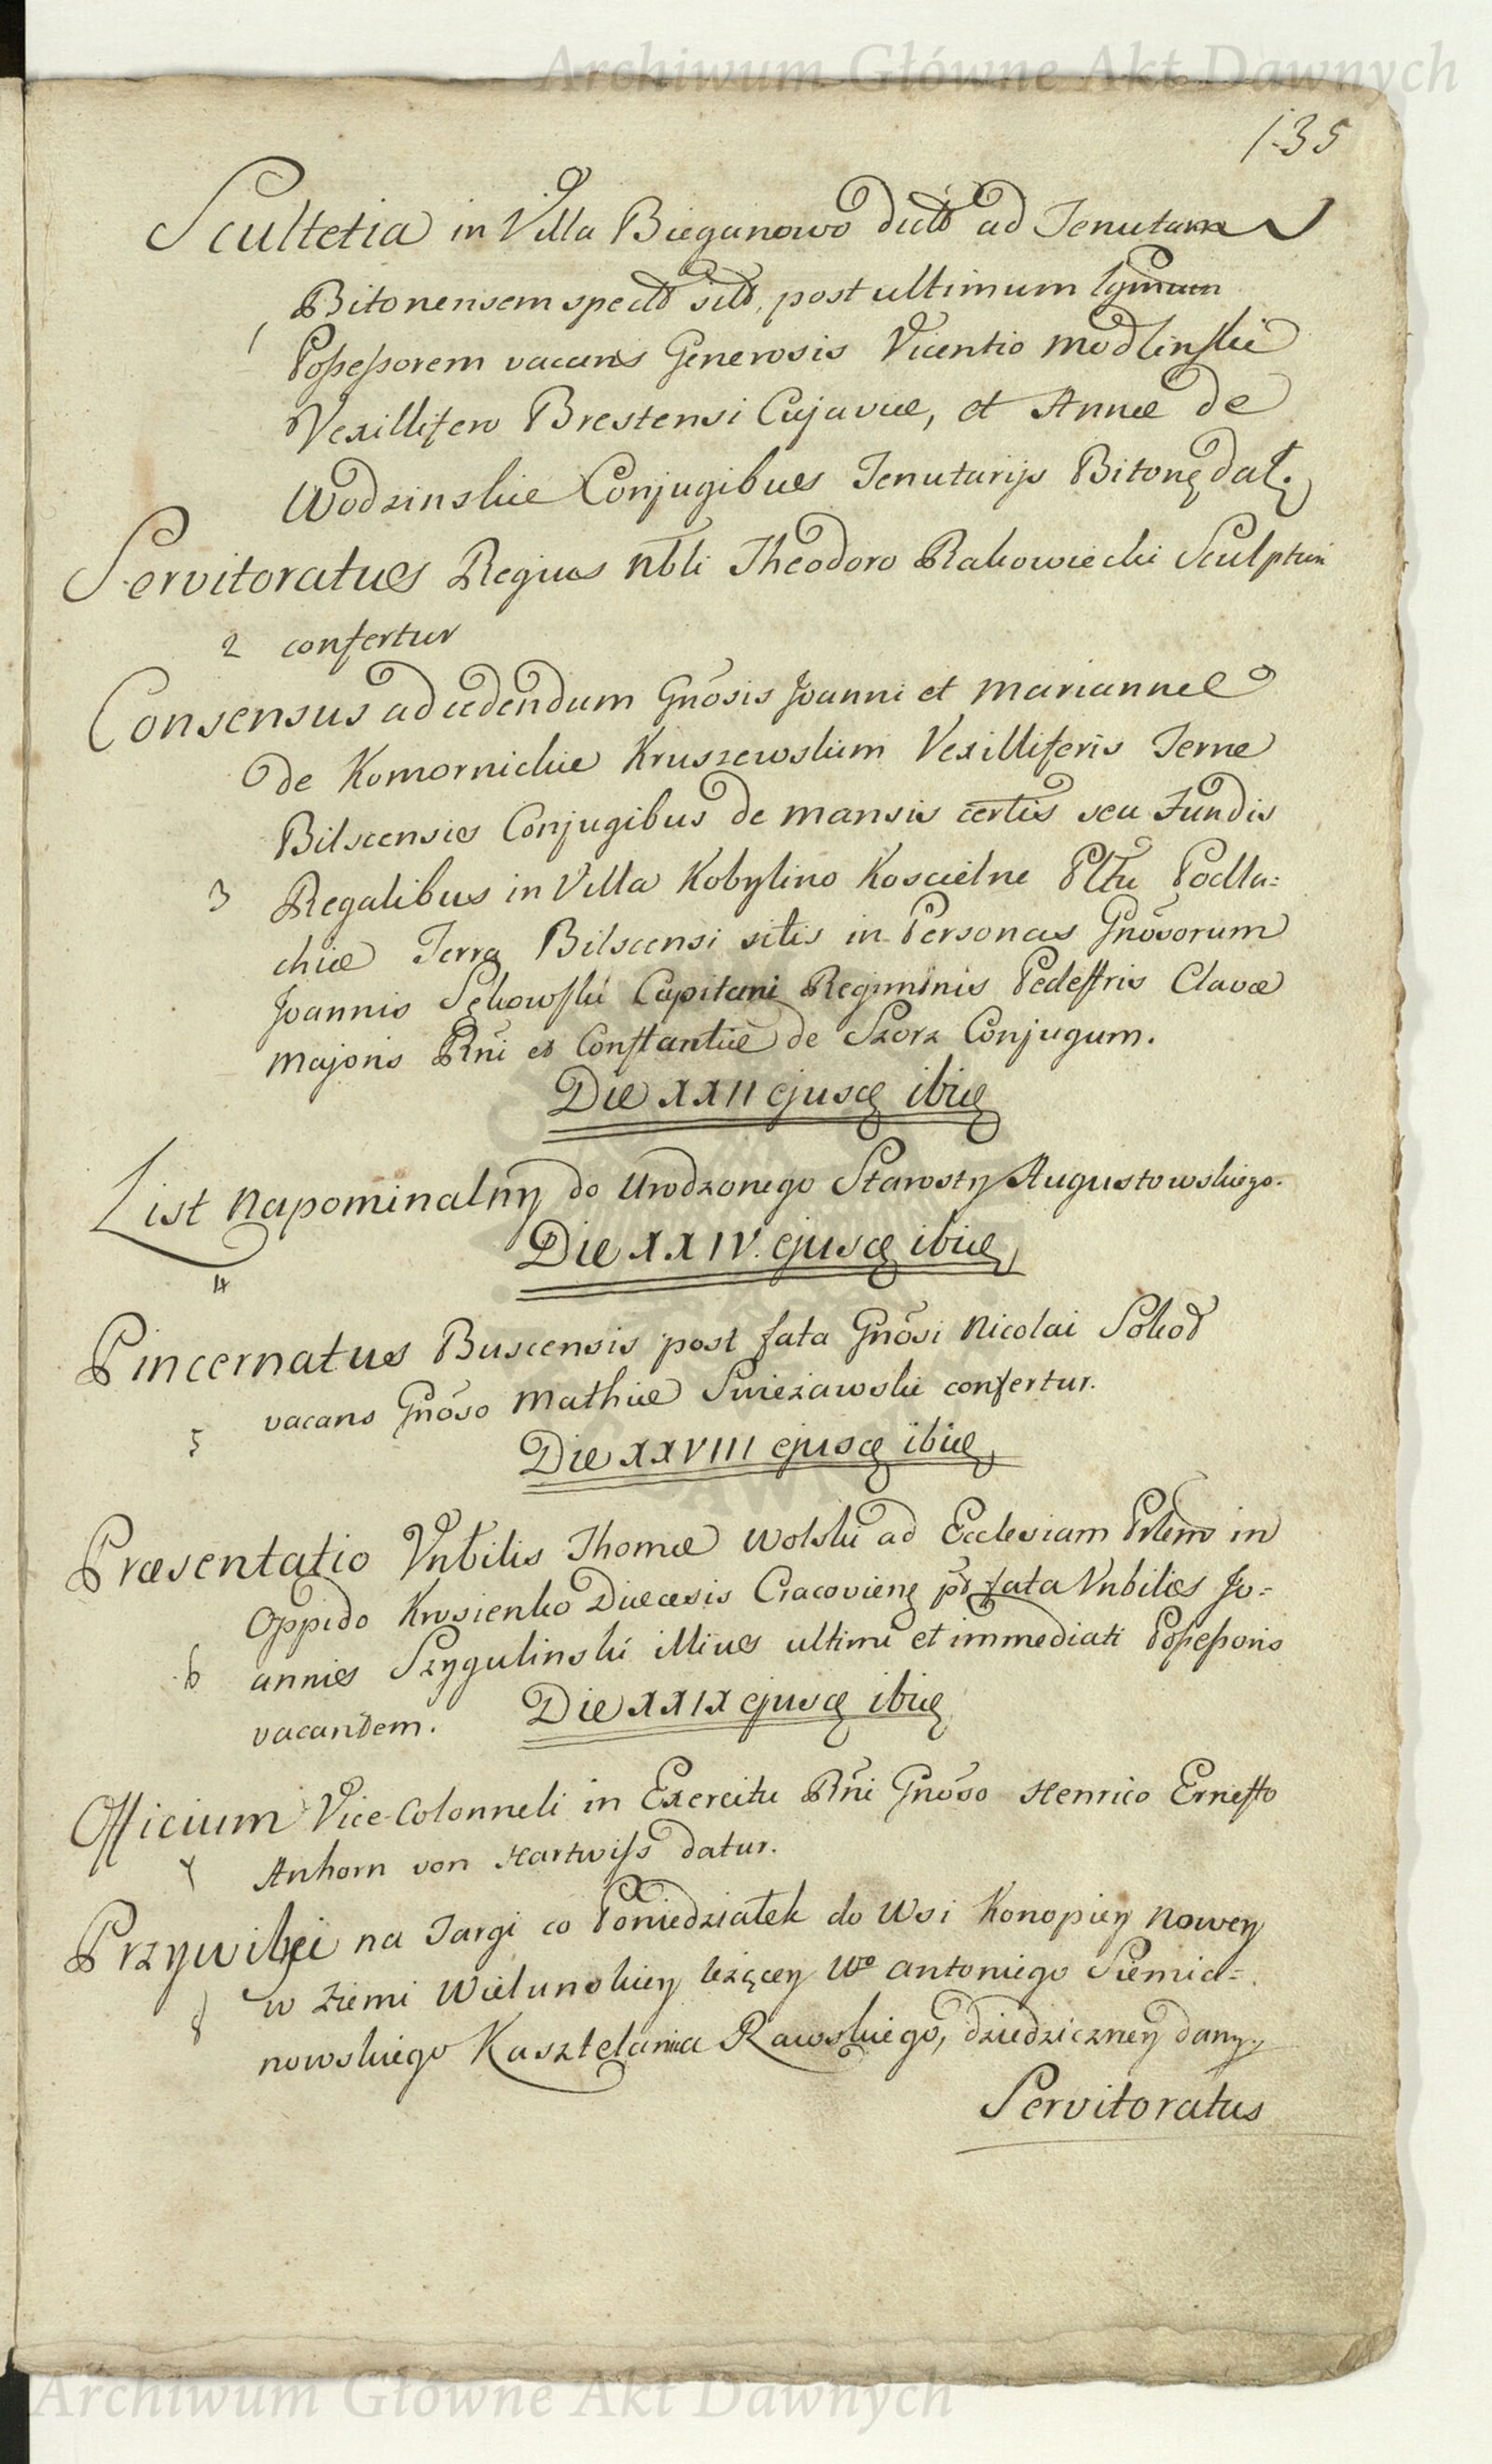 Archiwum Główne Akt Dawnych
135
Scultetia in Villa Bieganowo dicta ad Tenutam
Bitonensem spectt sitt, post ultimum
1 Possessorem vacans Generosis Vicentio Modlinskie
Vexillifero Brestensi Cujaviæ, et Annæ de
Wodzinskie Conjugibus Tenutarijs Biton dat.
Servitoratus Regius Nbli Theodoro Rakowiecki Sculptori
2 confertur
Consensus ad cedendum Gnosis Joanni et Mariannæ
de Komornickie Kruszewskim Vexilliferis Terræ
Bilscensis Conjugibus de mansis certis seu Fundis
3 Regalibus in Villa Kobylino Koscielne Pltu Podla=
chiæ Terra Bilscensi sitis in Personas Gnosorum
Joannis Sękowski Capitani Regiminis Pedestris Clavæ
Majoris Rni et Constantiæ de Szorz Conjugum.
Die XXII ejusq ibiq
List Napominalny do Urodzonego Starosty Augustowskiego.
4
Die XXIV ejusq ibiq
Pincernatus Buscensis post fata Gnosi Nicolai Sokoł
5 vacans Gnoso Mathiæ Swieżawskie confertur.
Die XXVIII ejusq ibiq
Præsentatio Vnbilis Thomæ Wolski ad Ecclesiam Prlem in
Oppido Krosienko Diæcesis Cracovien pt fata Vnbilis Jo=
6 annis Szygulinski illius ultimi et immediati Possessoris
vacantem. Die XXIX ejusq ibiq
Officium Vice-Colonneli in Exercitu Rni Gnoso Henrico Ernesto
7 Anhorn von Hartwiss datur.
Przywilej na Targi co Poniedziałek do Wsi Konopicy Nowey
8 w Ziemi Wielunskiey leżącey Wo Antoniego Siemia=
nowskiego Kasztelanica Rawskiego, dziedziczney dany.
Servitoratus
Archiwum Główne Akt Dawnych